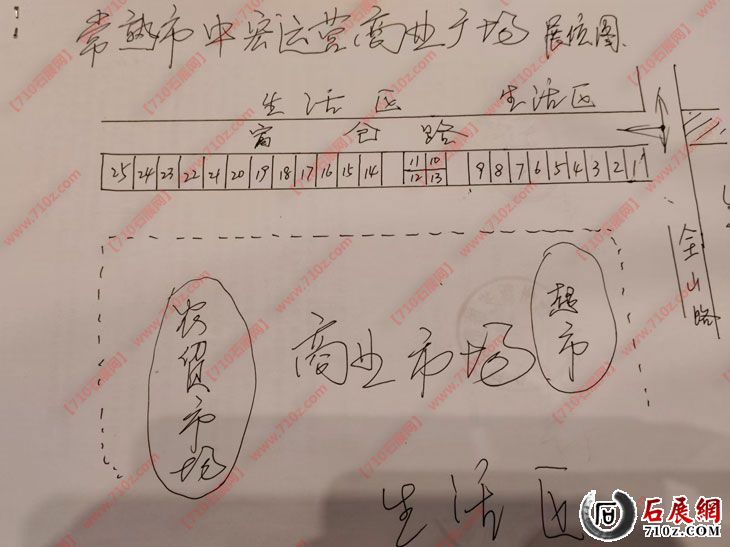 常熟市中宏运营商业广场 展位图
生活区 生活区
富仓路
25 24 23 22 21 20 19 18 17 16 15 14 11 10 9 8 7 6 5 4 3 2 1
12 13
金山路
农贸市场
商业市场
超市
生活区
【710石展网】www.710z.com
石展網
710Z.COM